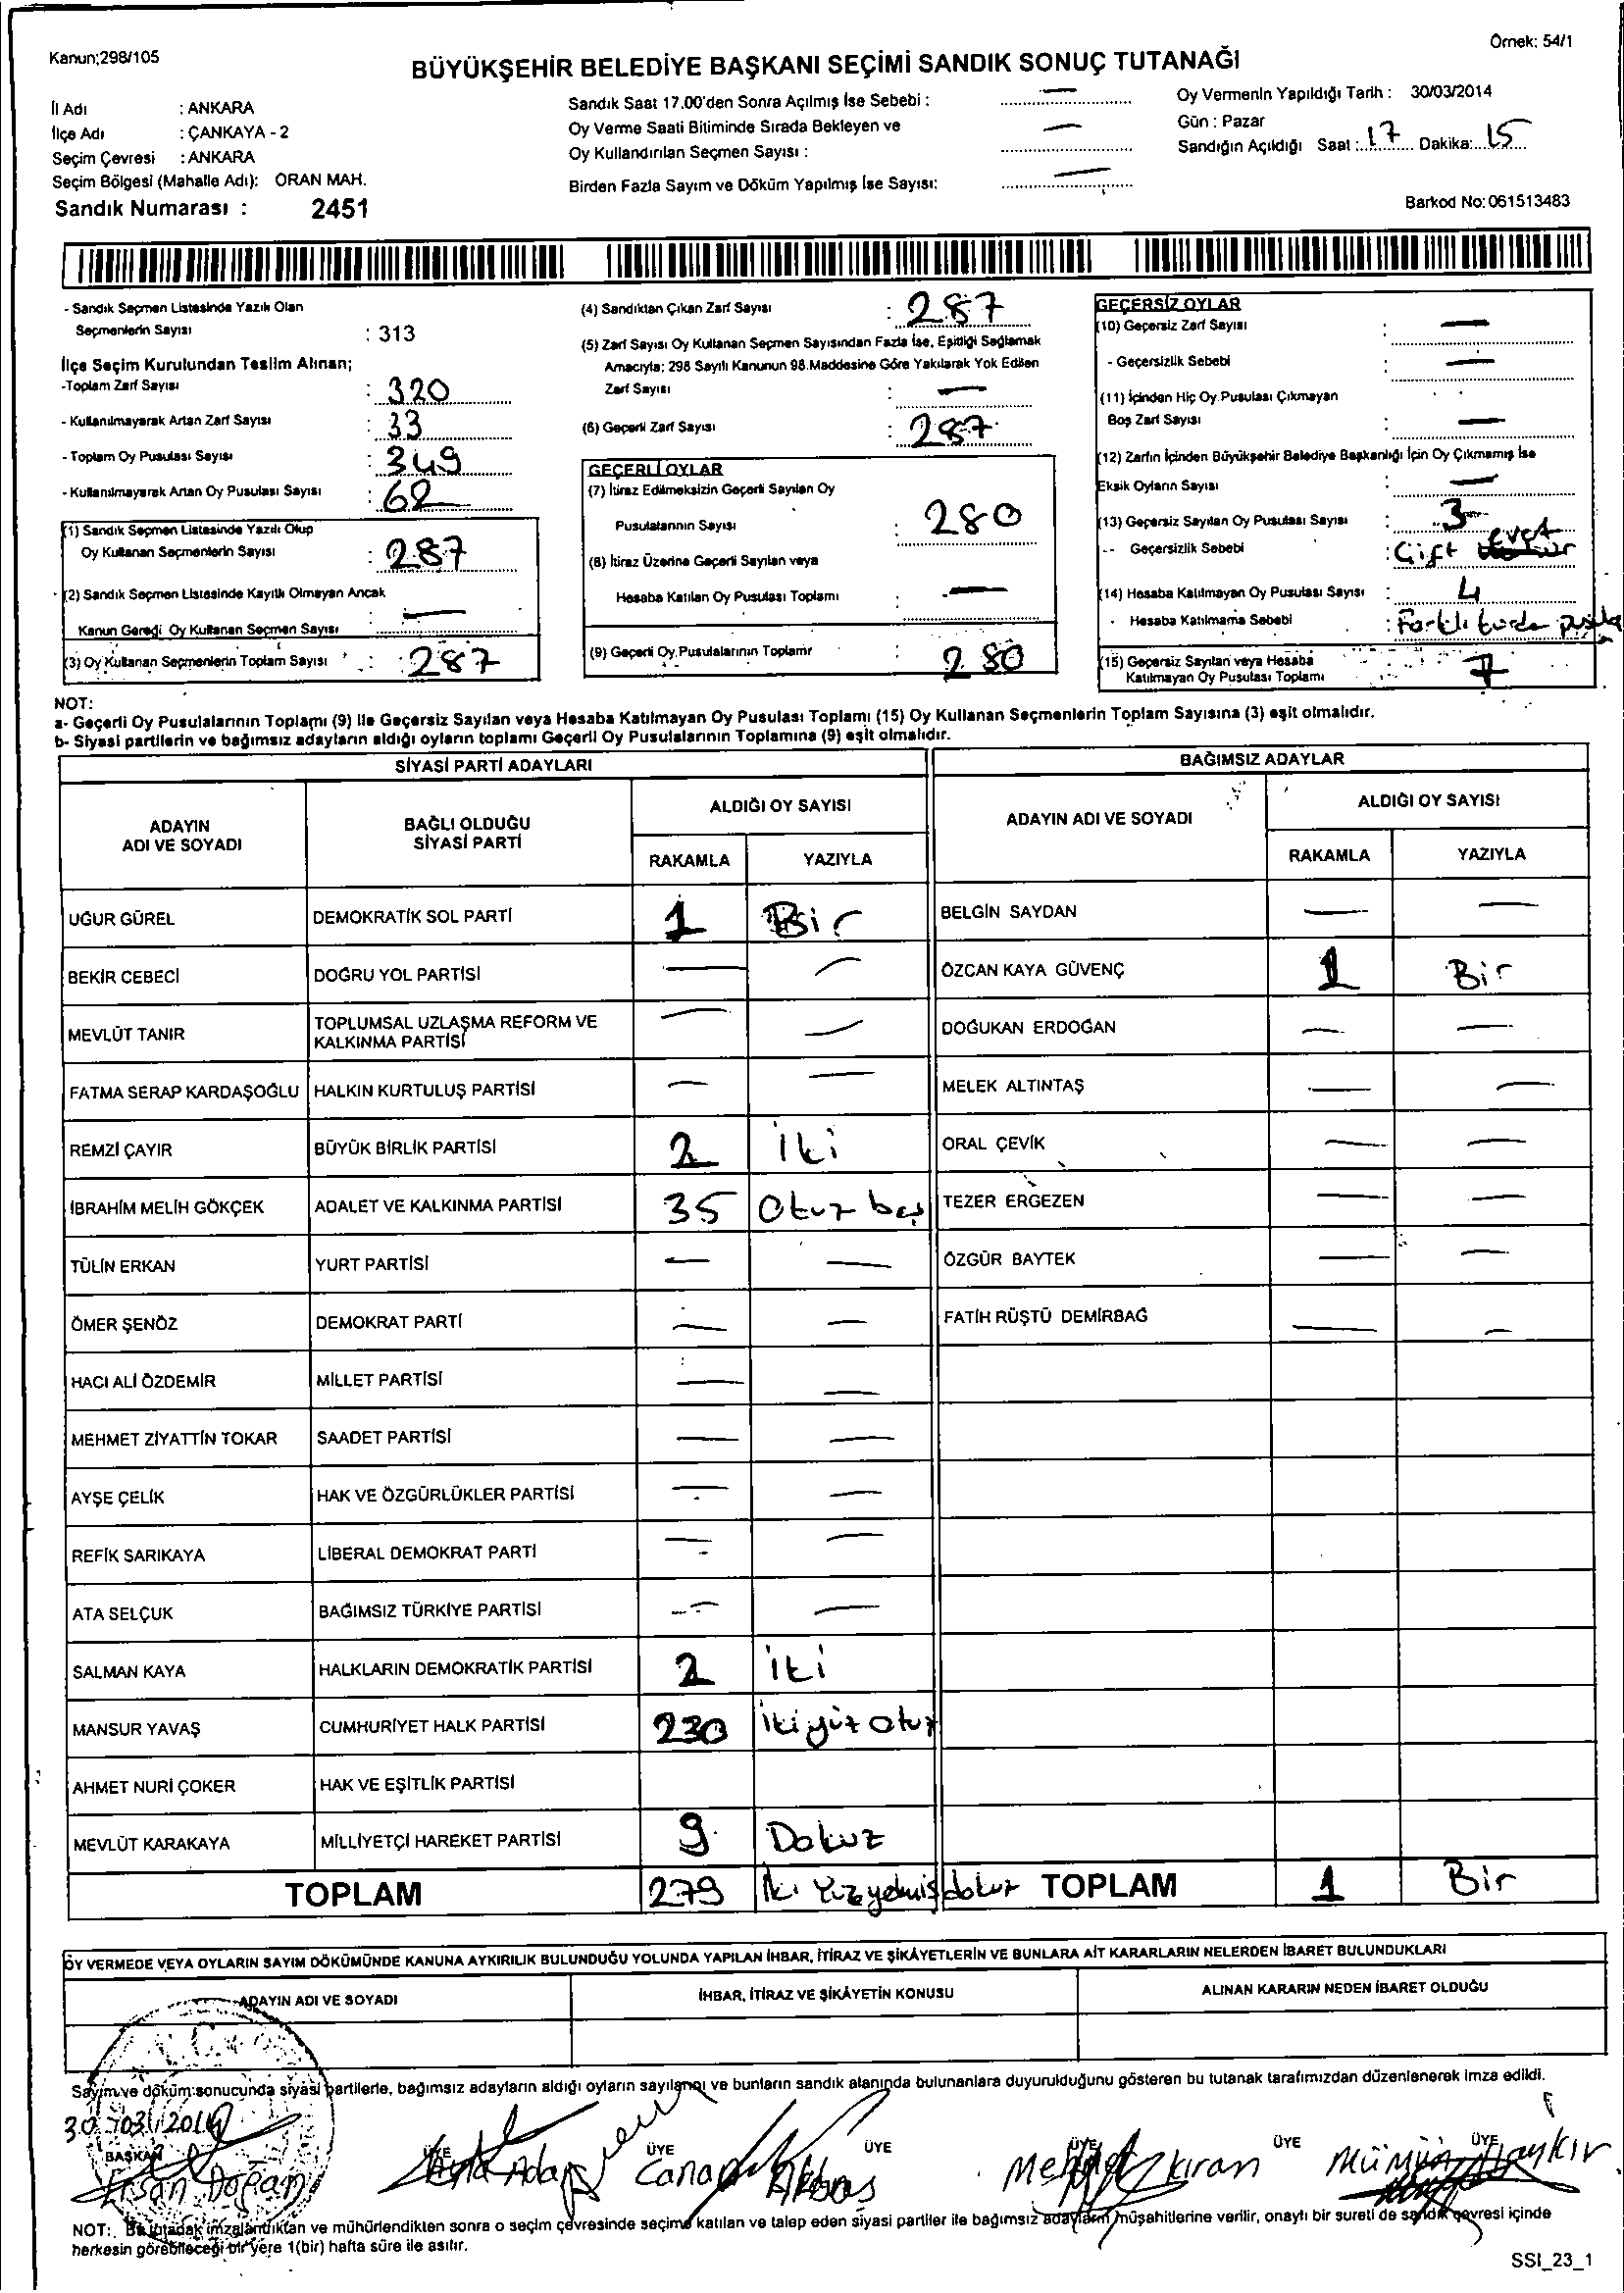 Kanun;298/105
Örnek: 54/1
BÜYÜKŞEHİR BELEDİYE BAŞKANI SEÇİMİ SANDIK SONUÇ TUTANAĞI
İl Adı : ANKARA
İlçe Adı : ÇANKAYA - 2
Seçim Çevresi : ANKARA
Seçim Bölgesi (Mahalle Adı): ORAN MAH.
Sandık Numarası : 2451
Sandık Saat 17.00'den Sonra Açılmış İse Sebebi : —
Oy Verme Saati Bitiminde Sırada Bekleyen ve —
Oy Kullandırılan Seçmen Sayısı :
Birden Fazla Sayım ve Döküm Yapılmış İse Sayısı: —
Oy Vermenin Yapıldığı Tarih : 30/03/2014
Gün : Pazar
Sandığın Açıldığı Saat : 17 Dakika: 15
Barkod No: 061513483
- Sandık Seçmen Listesinde Yazılı Olan
Seçmenlerin Sayısı : 313
İlçe Seçim Kurulundan Teslim Alınan;
-Toplam Zarf Sayısı : 320
- Kullanılmayarak Artan Zarf Sayısı : 33
- Toplam Oy Pusulası Sayısı : 349
- Kullanılmayarak Artan Oy Pusulası Sayısı : 62
(1) Sandık Seçmen Listesinde Yazılı Olup
Oy Kullanan Seçmenlerin Sayısı : 287
(2) Sandık Seçmen Listesinde Kayıtlı Olmayan Ancak
Kanun Gereği Oy Kullanan Seçmen Sayısı : —
(3) Oy Kullanan Seçmenlerin Toplam Sayısı : 287
(4) Sandıktan Çıkan Zarf Sayısı : 287
(5) Zarf Sayısı Oy Kullanan Seçmen Sayısından Fazla İse, Eşitliği Sağlamak
Amacıyla; 298 Sayılı Kanunun 98.Maddesine Göre Yakılarak Yok Edilen
Zarf Sayısı : —
(6) Geçerli Zarf Sayısı : 287
GEÇERLİ OYLAR
(7) İtiraz Edilmeksizin Geçerli Sayılan Oy
Pusulalarının Sayısı : 280
(8) İtiraz Üzerine Geçerli Sayılan veya
Hesaba Katılan Oy Pusulası Toplamı : —
(9) Geçerli Oy Pusulalarının Toplamı : 280
GEÇERSİZ OYLAR
(10) Geçersiz Zarf Sayısı : —
- Geçersizlik Sebebi : —
(11) İçinden Hiç Oy Pusulası Çıkmayan
Boş Zarf Sayısı : —
(12) Zarfın İçinden Büyükşehir Belediye Başkanlığı İçin Oy Çıkmamış İse
Eksik Oyların Sayısı : —
(13) Geçersiz Sayılan Oy Pusulası Sayısı : 3
-- Geçersizlik Sebebi : Çift evet
(14) Hesaba Katılmayan Oy Pusulası Sayısı : 4
- Hesaba Katılmama Sebebi : Farklı türde pusula
(15) Geçersiz Sayılan veya Hesaba
Katılmayan Oy Pusulası Toplamı : 7
NOT:
a- Geçerli Oy Pusulalarının Toplamı (9) ile Geçersiz Sayılan veya Hesaba Katılmayan Oy Pusulası Toplamı (15) Oy Kullanan Seçmenlerin Toplam Sayısına (3) eşit olmalıdır.
b- Siyasi partilerin ve bağımsız adayların aldığı oyların toplamı Geçerli Oy Pusulalarının Toplamına (9) eşit olmalıdır.
SİYASİ PARTİ ADAYLARI
ADAYIN ADI VE SOYADI BAĞLI OLDUĞU SİYASİ PARTİ ALDIĞI OY SAYISI
RAKAMLA YAZIYLA
UĞUR GÜREL DEMOKRATİK SOL PARTİ 1 Bir
BEKİR CEBECİ DOĞRU YOL PARTİSİ — —
MEVLÜT TANIR TOPLUMSAL UZLAŞMA REFORM VE KALKINMA PARTİSİ — —
FATMA SERAP KARDAŞOĞLU HALKIN KURTULUŞ PARTİSİ — —
REMZİ ÇAYIR BÜYÜK BİRLİK PARTİSİ 2 iki
İBRAHİM MELİH GÖKÇEK ADALET VE KALKINMA PARTİSİ 35 Otuz beş
TÜLİN ERKAN YURT PARTİSİ — —
ÖMER ŞENÖZ DEMOKRAT PARTİ — —
HACI ALİ ÖZDEMİR MİLLET PARTİSİ — —
MEHMET ZİYATTİN TOKAR SAADET PARTİSİ — —
AYŞE ÇELİK HAK VE ÖZGÜRLÜKLER PARTİSİ — —
REFİK SARIKAYA LİBERAL DEMOKRAT PARTİ — —
ATA SELÇUK BAĞIMSIZ TÜRKİYE PARTİSİ — —
SALMAN KAYA HALKLARIN DEMOKRATİK PARTİSİ 2 iki
MANSUR YAVAŞ CUMHURİYET HALK PARTİSİ 230 ikiyüz otuz
AHMET NURİ ÇOKER HAK VE EŞİTLİK PARTİSİ
MEVLÜT KARAKAYA MİLLİYETÇİ HAREKET PARTİSİ 9 Dokuz
TOPLAM 279 İki Yüz yetmiş dokuz
BAĞIMSIZ ADAYLAR
ADAYIN ADI VE SOYADI ALDIĞI OY SAYISI
RAKAMLA YAZIYLA
BELGİN SAYDAN — —
ÖZCAN KAYA GÜVENÇ 1 Bir
DOĞUKAN ERDOĞAN — —
MELEK ALTINTAŞ — —
ORAL ÇEVİK — —
TEZER ERGEZEN — —
ÖZGÜR BAYTEK — —
FATİH RÜŞTÜ DEMİRBAĞ — —
TOPLAM 1 Bir
OY VERMEDE VEYA OYLARIN SAYIM DÖKÜMÜNDE KANUNA AYKIRILIK BULUNDUĞU YOLUNDA YAPILAN İHBAR, İTİRAZ VE ŞİKÂYETLERİN VE BUNLARA AİT KARARLARIN NELERDEN İBARET BULUNDUKLARI
ADAYIN ADI VE SOYADI İHBAR, İTİRAZ VE ŞİKÂYETİN KONUSU ALINAN KARARIN NEDEN İBARET OLDUĞU
Sayım ve döküm sonucunda siyasi partilerle, bağımsız adayların aldığı oyların sayılarını ve bunların sandık alanında bulunanlara duyurulduğunu gösteren bu tutanak tarafımızdan düzenlenerek imza edildi.
30/03/2014
BAŞKAN ÜYE ÜYE ÜYE ÜYE ÜYE ÜYE
Doğan Canan Akbaş Kıran Mümün
NOT: Bu tutanak imzalandıktan ve mühürlendikten sonra o seçim çevresinde seçime katılan ve talep eden siyasi partiler ile bağımsız adayların müşahitlerine verilir, onaylı bir sureti de sandık çevresi içinde
herkesin görebileceği bir yere 1(bir) hafta süre ile asılır.
SSI_23_1